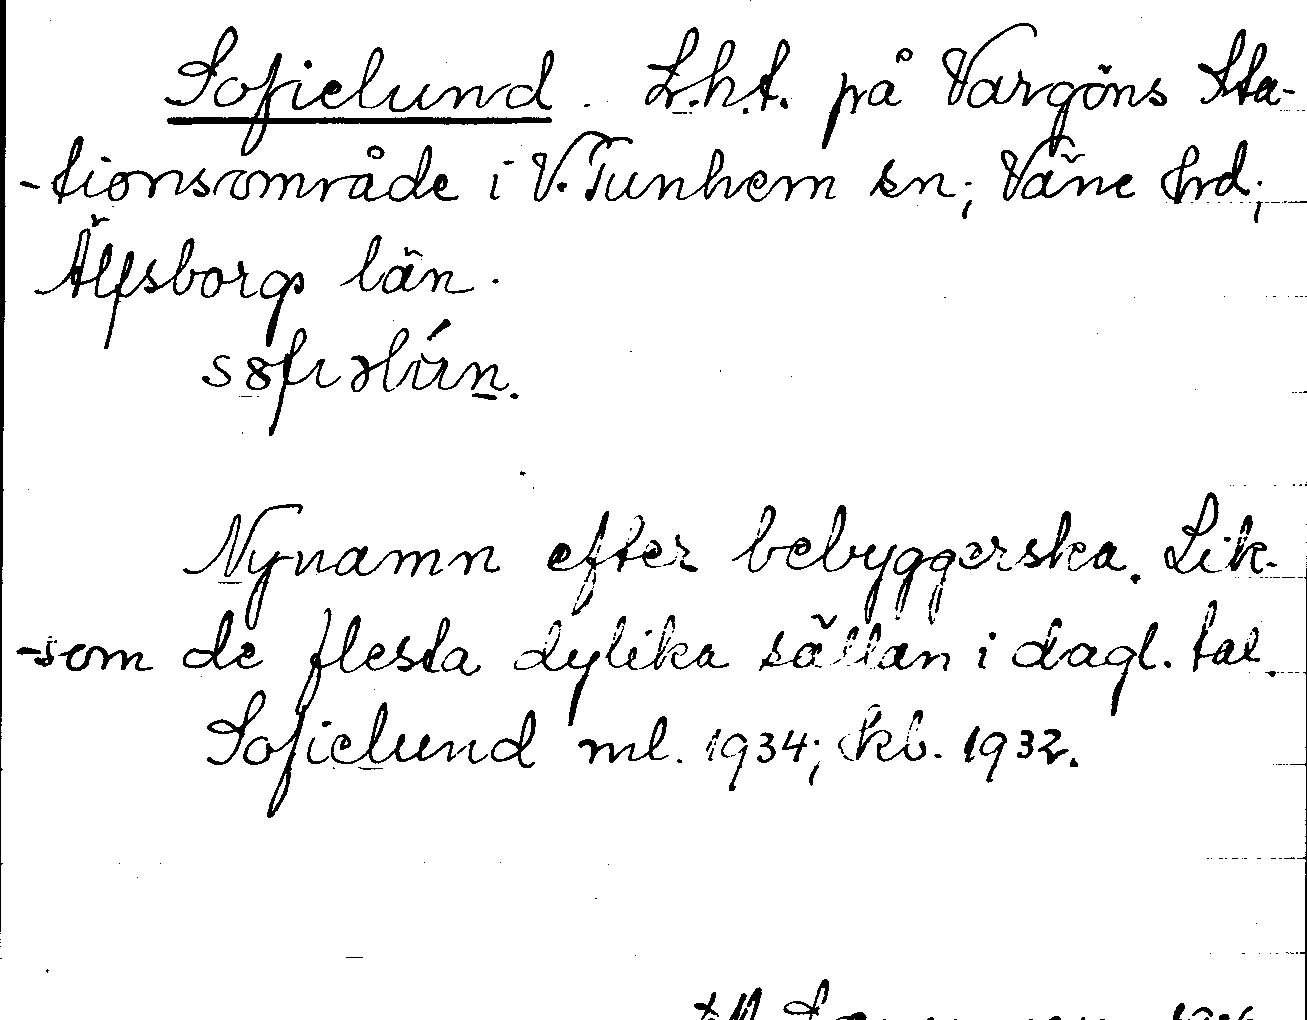 Sofielund. L.h.t. på Vargöns Sta-
-tionsområde i V. Tunhem sn; Väne hrd;
Älfsborgs län.
Nynamn efter bebyggerska. Lik-
-som de flesta dylika sällan i dagl. tal.
Sofielund ml. 1934; kb. 1932.